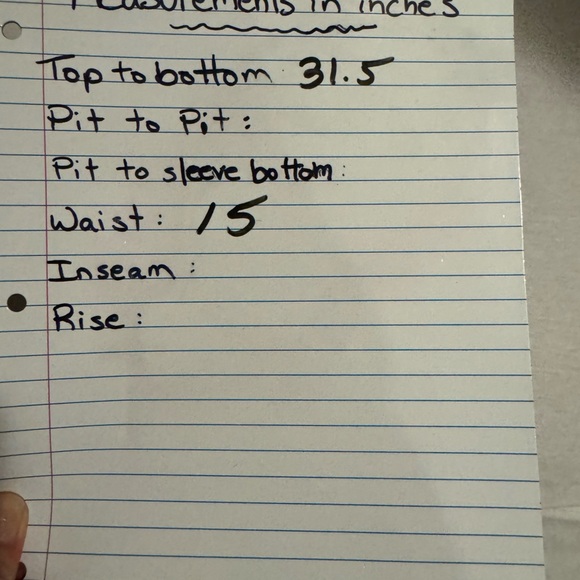 Measurements in inches
Top to bottom 31.5
Pit to Pit:
Pit to sleeve bottom:
Waist: 15
Inseam:
Rise: